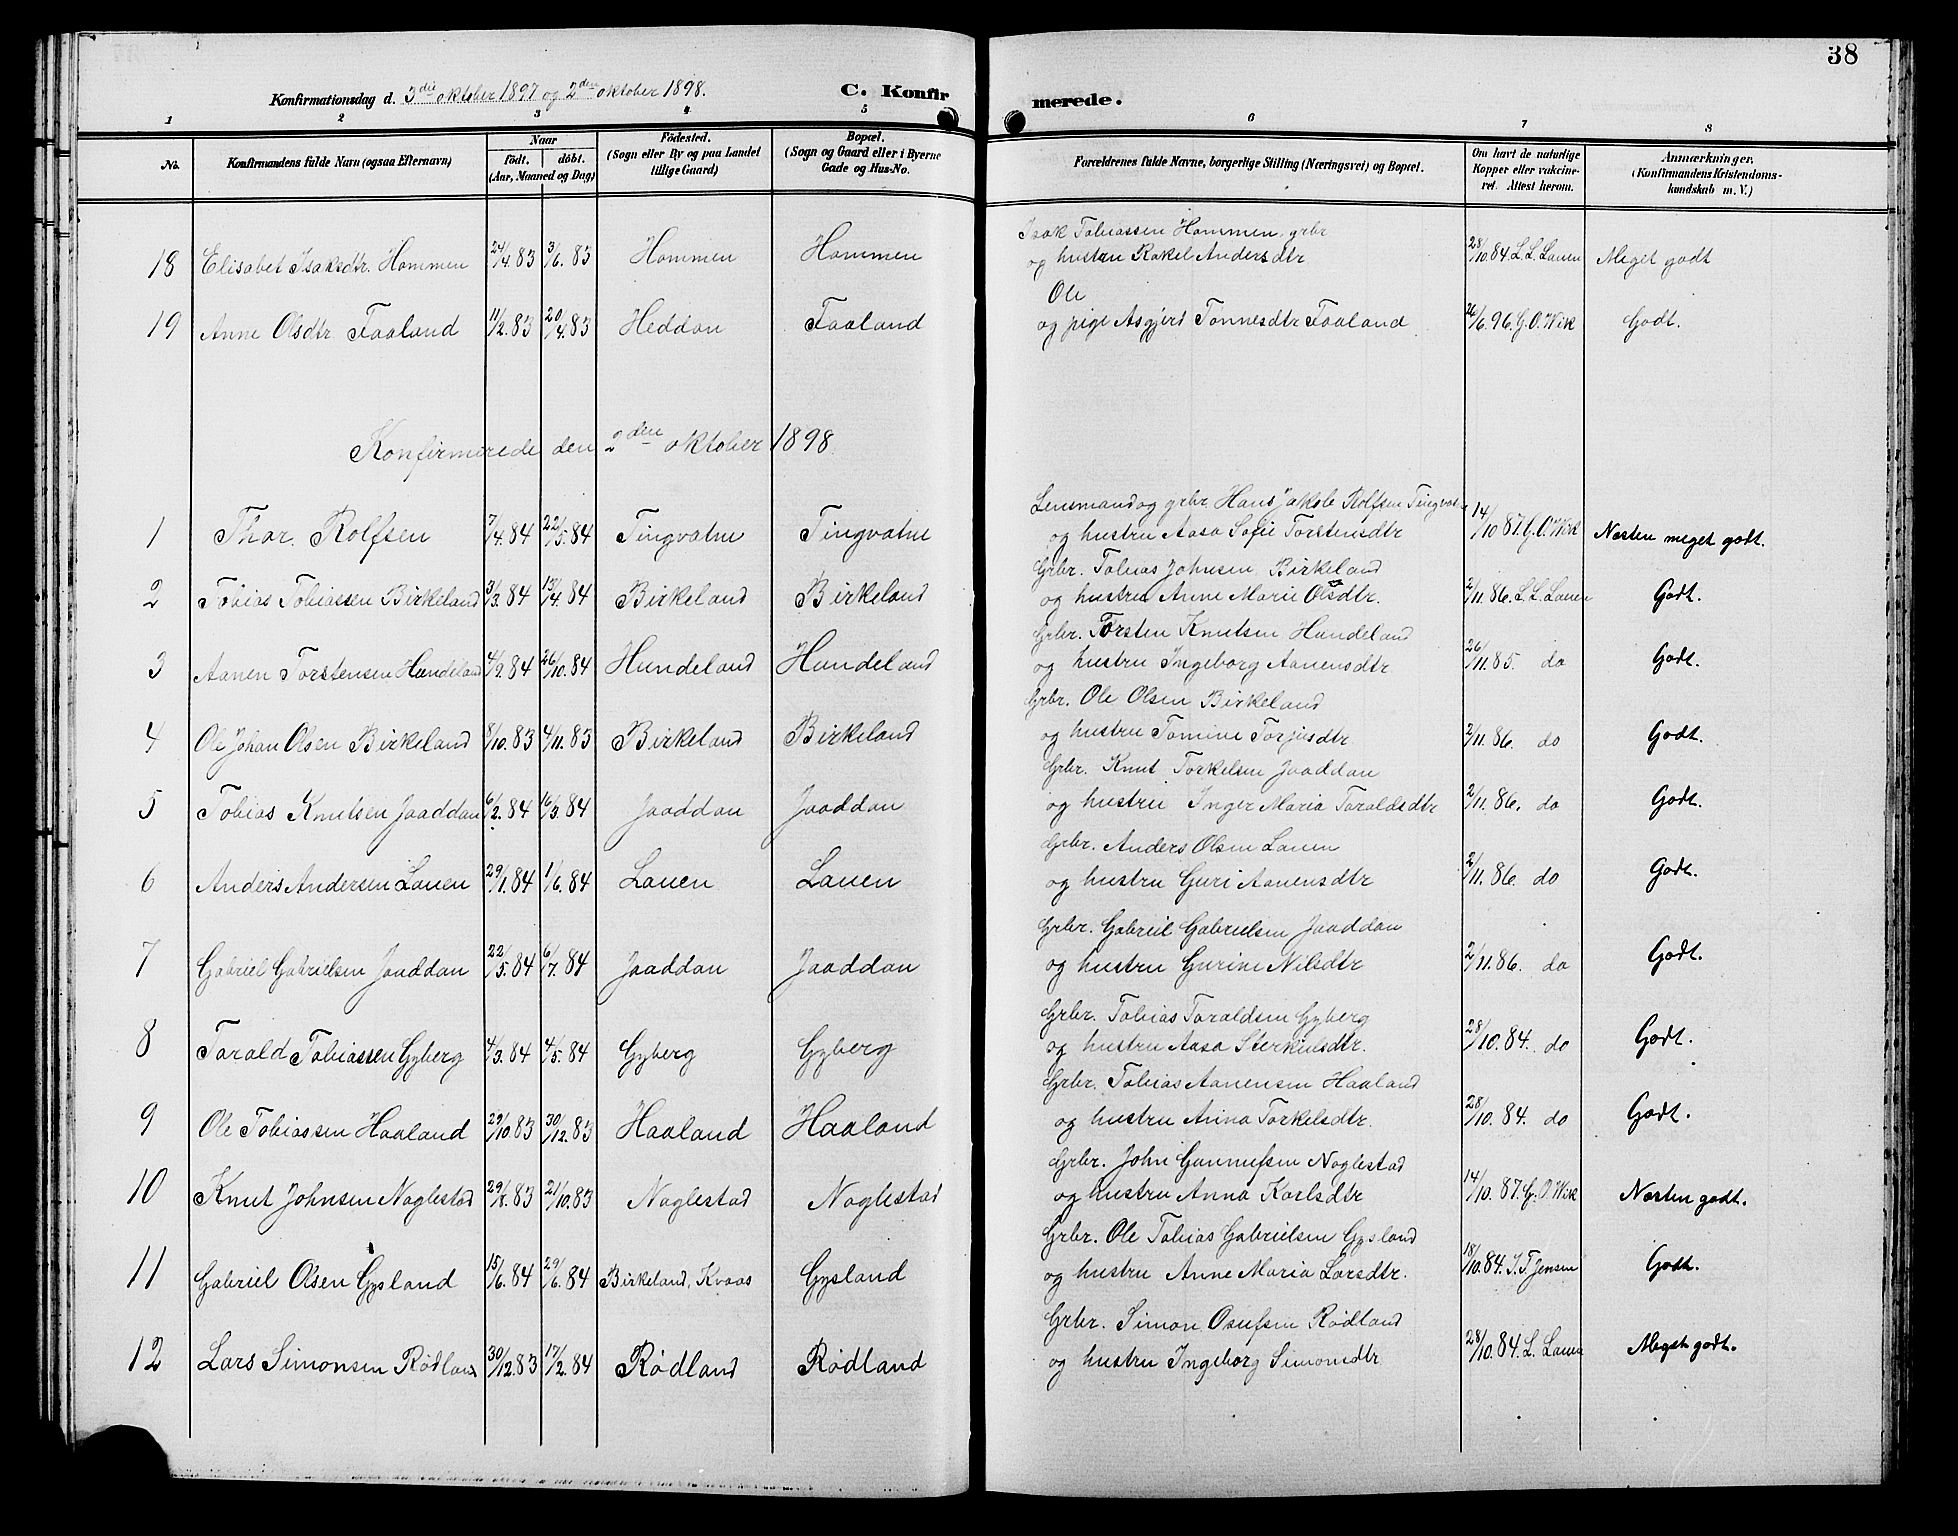 38
Konfirmationsdag d. 3die oktober 1897 og 2den oktober 1898. C. Konfirmerede.
1 2 3 4 5 6 7 8
No. Konfirmandens fulde Navn (ogsaa Efternavn) Naar födt. döbt. (Aar, Maaned og Dag) Födested. (Sogn eller By og paa Landet tillige Gaard) Bopæl. (Sogn og Gaard eller i Byerne Gade og Hus-No. Forældrenes fulde Navne, borgerlige Stilling (Næringsvei) og Bopæl. Om havt de naturlige Kopper eller vakcineret. Attest herom. Anmærkninger. (Konfirmandens Kristendomskundskab m. V.)
Isak Tobiassen Hommen, grbr
18 Elisabet Isaksdtr. Hommen 24/4.83 3/6.83 Hommen Hommen og hustru Rakel Andersdtr 28/10.84 L. L. Lauen Meget godt
Ole
19 Anne Olsdtr Faaland 11/2.83 20/4.83 Heddan Faaland og pige Asgjerd Tönnesdtr Faaland 26/6.96. G. O. Wik Godt.
Konfirmerede den 2den oktober 1898
Lensmand og grbr. Hans Jakob Rolfsen Tingvatne
1 Thor. Rolfsen 7/4.84 22/5.84 Tingvatne Tingvatne og hustru Aasa Sofie Torstensdtr 14/10 87. G. O. Wik Næsten meget godt.
Grbr. Tobias Johnsen Birkeland
2 Tobias Tobiassen Birkeland 3/3.84 13/4.84 Birkeland Birkeland og hustru Anne Marie Olsdtr. 2/11.86. L. L. Lauen Godt.
Grbr. Torsten Knutsen Hundeland
3 Aanen Torstensen Hundeland 4/9.84 26/10.84 Hundeland Hundeland og hustru Ingeborg Aanensdtr 26/11.85. do Godt.
Grbr. Ole Olsen Birkeland
4 Ole Johan Olsen Birkeland 8/10.83 4/11.83 Birkeland Birkeland og hustru Tomine Torjusdtr 2/11.86. do Godt.
Grbr. Knut Torkelsen Jaaddan
5 Tobias Knutsen Jaaddan 6/2.84 16/3.84 Jaaddan Jaaddan og hustru Inger Maria Taraldsdtr 2/11.86. do Godt.
Grbr. Anders Olsen Lauen
6 Anders Andersen Lauen 29/1.84 1/6.84 Lauen Lauen og hustru Guri Aanensdtr 2/11.86. do Godt.
Grbr. Gabriel Gabrielsen Jaaddan
7 Gabriel Gabrielsen Jaaddan 22/5.84 6/7.84 Jaaddan Jaaddan og hustru Gurine Nilsdtr 2/11.86. do Godt.
Grbr. Tobias Taraldsen Gyberg
8 Tarald Tobiassen Gyberg 4/3.84 4/5.84 Gyberg Gyberg og hustru Aasa Sterkulsdtr. 28/10.84. do Godt.
Grbr. Tobias Aanensen Haaland
9 Ole Tobiassen Haaland 29/10.83 30/12.83 Haaland Haaland og hustru Anna Torkelsdtr. 28/10.84. do Godt.
Grbr. John Gunnufsen Naglestad
10 Knut Johnsen Naglestad 29/8.83 21/10.83 Naglestad Naglestad og hustru Anna Karlsdtr 14/10.87. G. O. Wik Næsten godt.
Grbr. Ole Tobias Gabrielsen Gysland
11 Gabriel Olsen Gysland 15/6.84 29/6.84 Birkeland, Kvaas Gysland og hustru Anne Maria Larsdtr. 18/10.84. J. T. Jensen Godt.
Grbr. Simon Osufsen Rødland
12 Lars Simonsen Rødland 30/12.83 17/2.84 Rødland Rødland og hustru Ingeborg Simonsdtr 28/10.84. L. Lauen Meget godt.